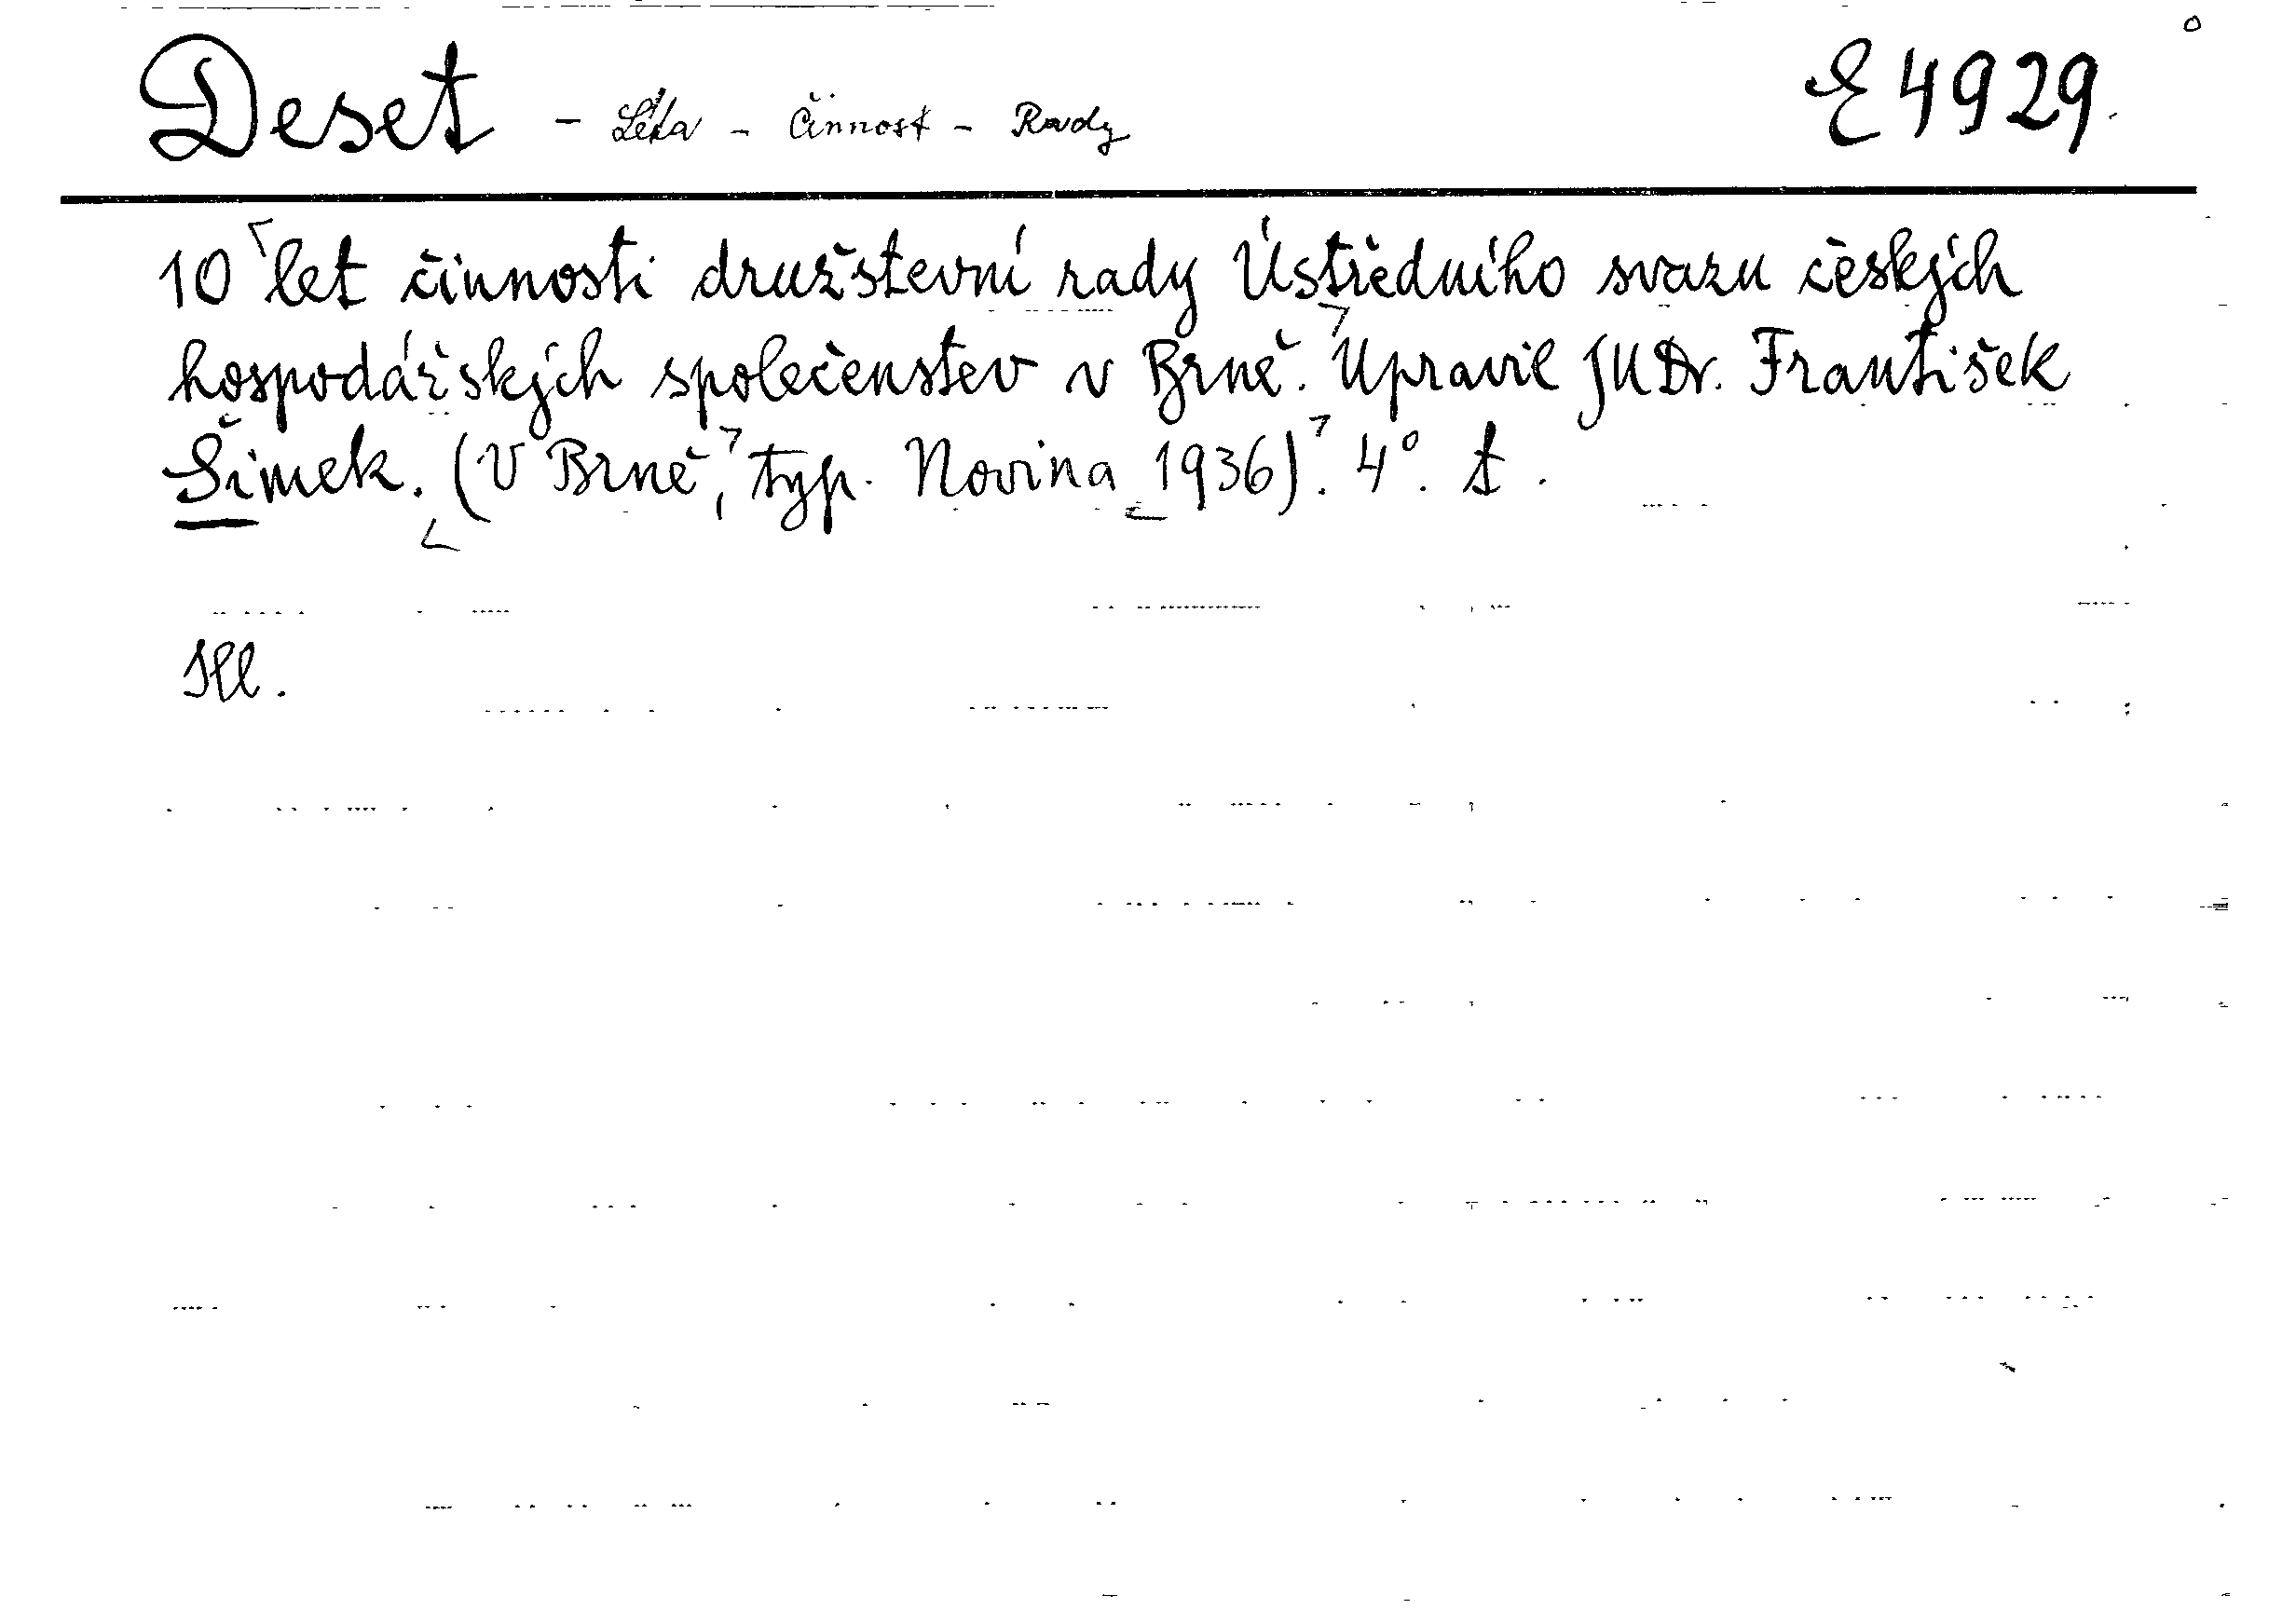 Deset - Léta - Činnost - Rady E 4929.
10 let činnosti družstevní rady Ústředního svazu českých
hospodářských společenstev v Brně. Upravil JUDr. František
Šimek. (V Brně, typ. Novina 1936). 4°. t.
Ill.